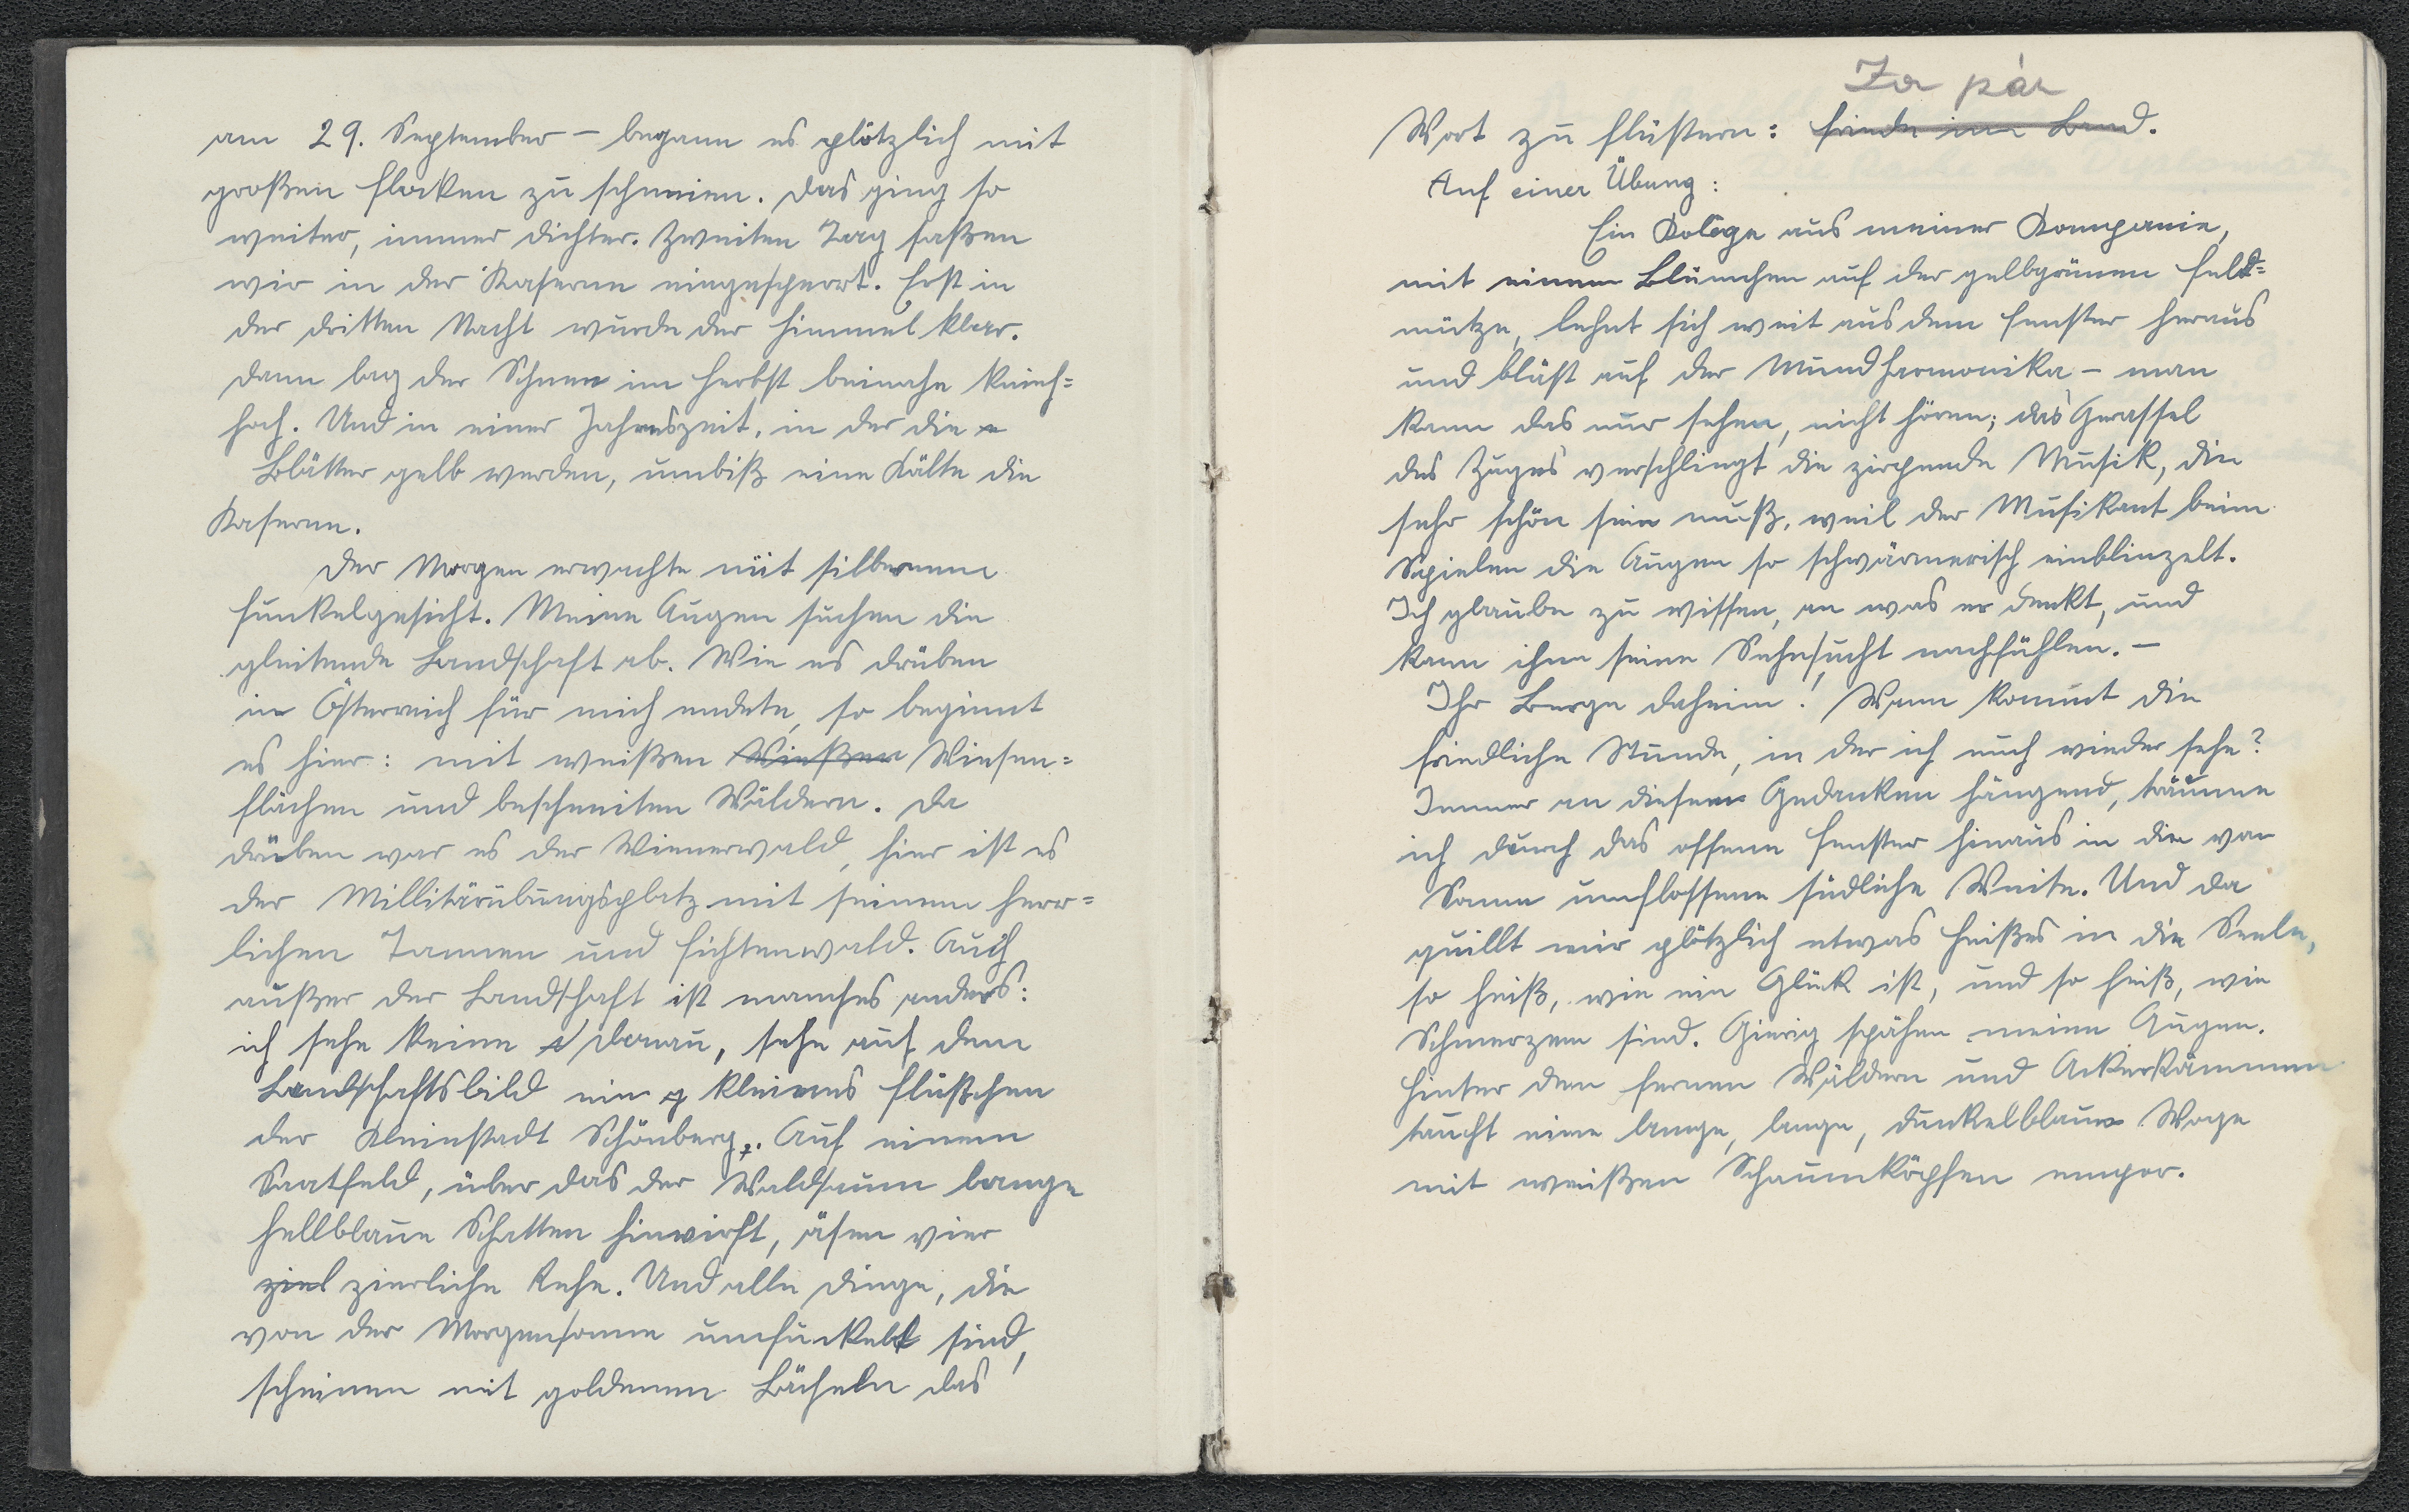 am 29. September – begann es plötzlich mit
großen Flocken zu schneien. Das ging so
weiter, immer dichter. Zweiten Tag saßen
wir in der Kaserne eingesperrt. Erst in
der dritten Nacht wurde der Himmel klar.
Dann lag der Schnee im Herbst beinahe knieh=
hoch. Und in einer Jahreszeit, in der die
Blätter gelb werden, umbiß eine Kälte die
Kaserne.
Der Morgen erwachte mit silbernem
Funkelgesicht. Meine Augen suchen die
gleitende Landschaft ab. Wie es drüben
in Österreich für mich endete, so beginnt
es hier: mit weißen Wießen Wiesen=
flächen und beschneiten Wäldern. Da
drüben war es der Wienerwald, hier ist es
der Millitärübungsplatz mit seinem herr=
lichen Tannen und Fichtenwald. Auch
außer der Landschaft ist manches anders:
ich sehe keine d Donau, sehe auf dem
Landschaftsbild ein g kleines Flüßchen
der Kleinstadt Schönberg. Auf einem
Saatfeld, über das der Waldsaum lange
hellblaue Schatten hinwirft, äsen vier
ziel zierliche Rehe. Und alle Dinge, die
von der Morgensonne umfunkelt sind,
scheinen mit goldenem Lächeln das
Za pár
Wort zu flüstern: Friede im Land.
Auf einer Übung:
Ein Kolege aus meiner Kompanie,
mit einem Blümchen auf der gelbgrünen Feld=
mütze, lehnt sich weit aus dem Fenster heraus
und bläst auf der Mundharmonika – man
kann das nur sehen, nicht hören; das Gerassel
des Zuges verschlingt die zirpende Musik, die
sehr schön sein muß, weil der Musikant beim
Spielen die Augen so schwärmerisch einblinzelt.
Ich glaube zu wissen, an was er denkt, und
kann ihm seine Sehnsucht nachfühlen. –
Ihr Berge daheim! Wann kommt die
friedliche Stunde, in der ich euch wieder sehe?
Immer an diesem Gedanken hängend, träume
ich durch das offene Fenster hinaus in die von
Sonne umflossene südliche Weite. Und da
quillt mir plötzlich etwas Heißes in die Seele,
so heiß, wie ein Glück ist, und so heiß, wie
Schmerzen sind. Gierig spähen meine Augen.
Hinter den fernen Wäldern und Ackerkämmen
taucht eine lange, lange, dunkelblaue Woge
mit weißen Schaumköpfen empor.